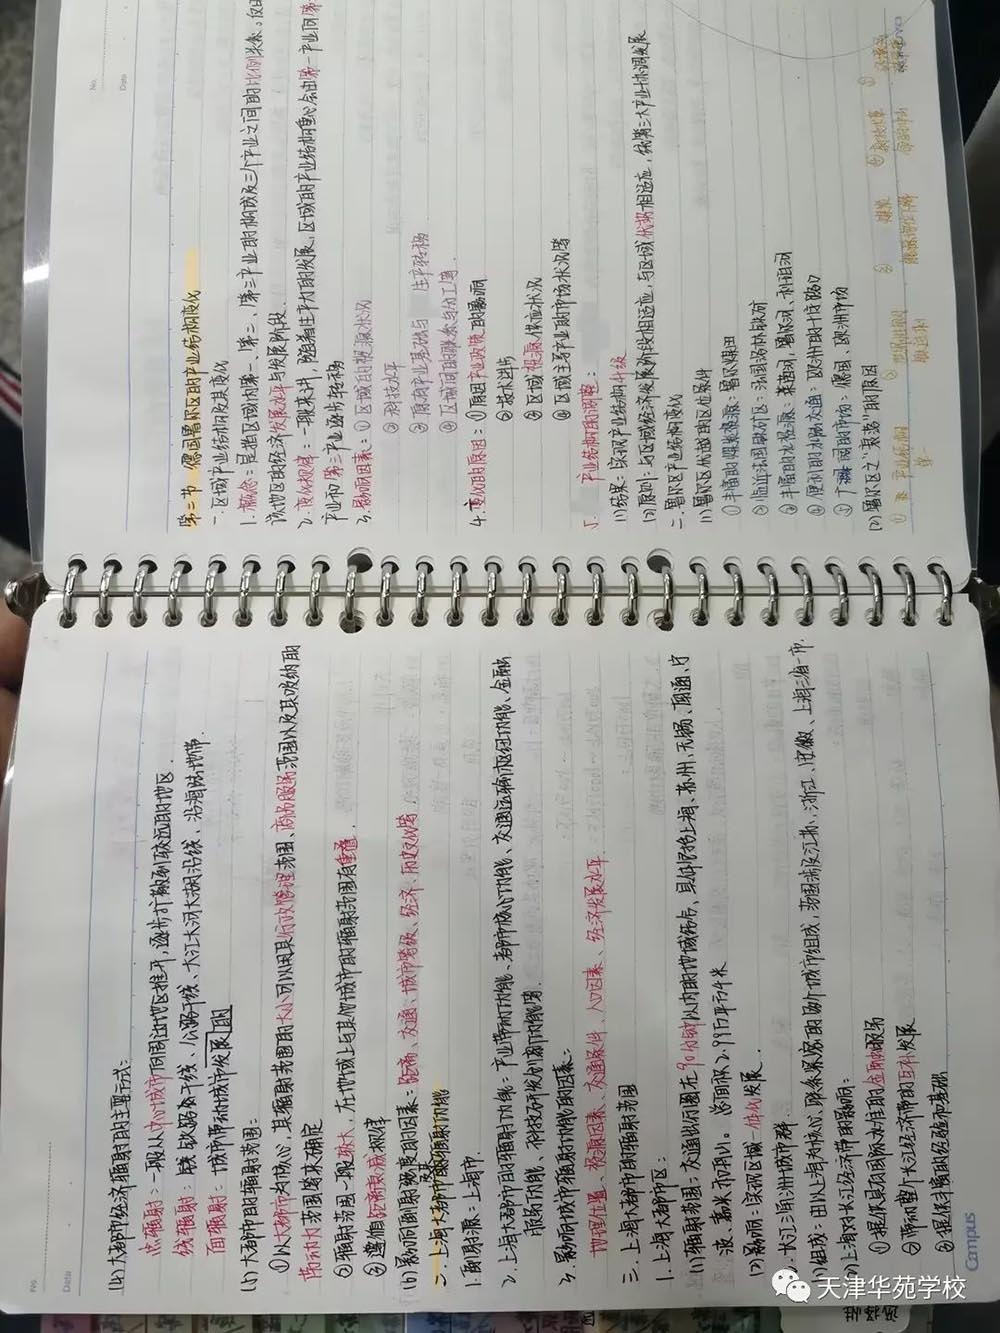 (4) 大都市经济辐射的主要方式:
点辐射:一般从中心城市向周边地区推开,逐步扩散到较远的地区.
线辐射:铁路干线、公路干线、大江大河大湖沿线、沿海陆地带.
面辐射:城市带动城市发展的
(5) 大都市的辐射范围:
①以大都市为核心,其辐射范围的大小可以用其行政管理范围、商品服务范围以及其吸纳的
劳动力范围等来确定
②辐射范围一般较大,在地域上与其他城市的辐射范围有重叠
③遵循距离衰减规律
(6) 影响辐射强度的因素:距离、交通、城市等级、经济、历史文化等
二、上海大都市的辐射功能
1. 辐射源:上海市.
2. 上海大都市的辐射功能:产业带动功能、都市核心功能、交通运输枢纽功能、金融
服务功能、科技研发创新功能等.
3. 影响城市辐射功能的因素:
地理位置、资源因素、交通条件、人口因素、经济发展水平.
三、上海大都市的辐射范围
1. 上海大都市区:
(1) 辐射范围:交通出行圈在90分钟以内的地域结点,具体包括上海、苏州、无锡、南通、宁
波、嘉兴和舟山。总面积2.99万平方千米
(2) 影响:实现区域一体化发展.
2. 长江三角洲城市群
(1) 组成:由以上海为核心、联系紧密的多个城市组成,范围涉及江苏、浙江、安徽、上海三省一市.
(2) 上海对长江经济带的影响:
①提供具有国际水准的金融服务
②带动整个长江经济带的互补发展
③提供丰富的经验和基础
Campus
No.
Date
第二节 德国鲁尔区的产业结构变化
一、区域产业结构及其变化
1. 概念:是指区域内第一、第二、第三产业的构成及三个产业之间的比例关系,反映
该地区的经济发展水平与发展阶段.
2. 变化规律:一般来讲,随着生产力的发展,区域的产业结构重心会由第一产业向第
产业和第三产业逐步转移
3. 影响因素:①区域的资源状况
②科技水平
③原有产业基础与 生产转移
④区域间的联系与分工等.
4. 变化的原因:①原有产业衰败的影响
②技术进步
③区域资源供应状况
④区域主导产业的市场状况等
5. 产业结构的调整:
(1) 结果:实现产业结构升级
(2) 原则:与区域经济发展阶段相适应,与区域优势相适应,统筹三大产业协调发展
二、鲁尔区产业结构变化
(1) 鲁尔区优越的区位条件
①丰富的煤炭资源:鲁尔煤田
②临近法国铁矿区:法国洛林铁矿
③丰富的水资源:莱茵河、鲁尔河、利珀河
④便利的水陆交通:欧洲的十字路口
⑤广阔的市场:德国、欧洲市场
(2) 鲁尔区之“衰落”的原因
① 产业结构
单一
煤炭
No.
Date
天津华苑学校